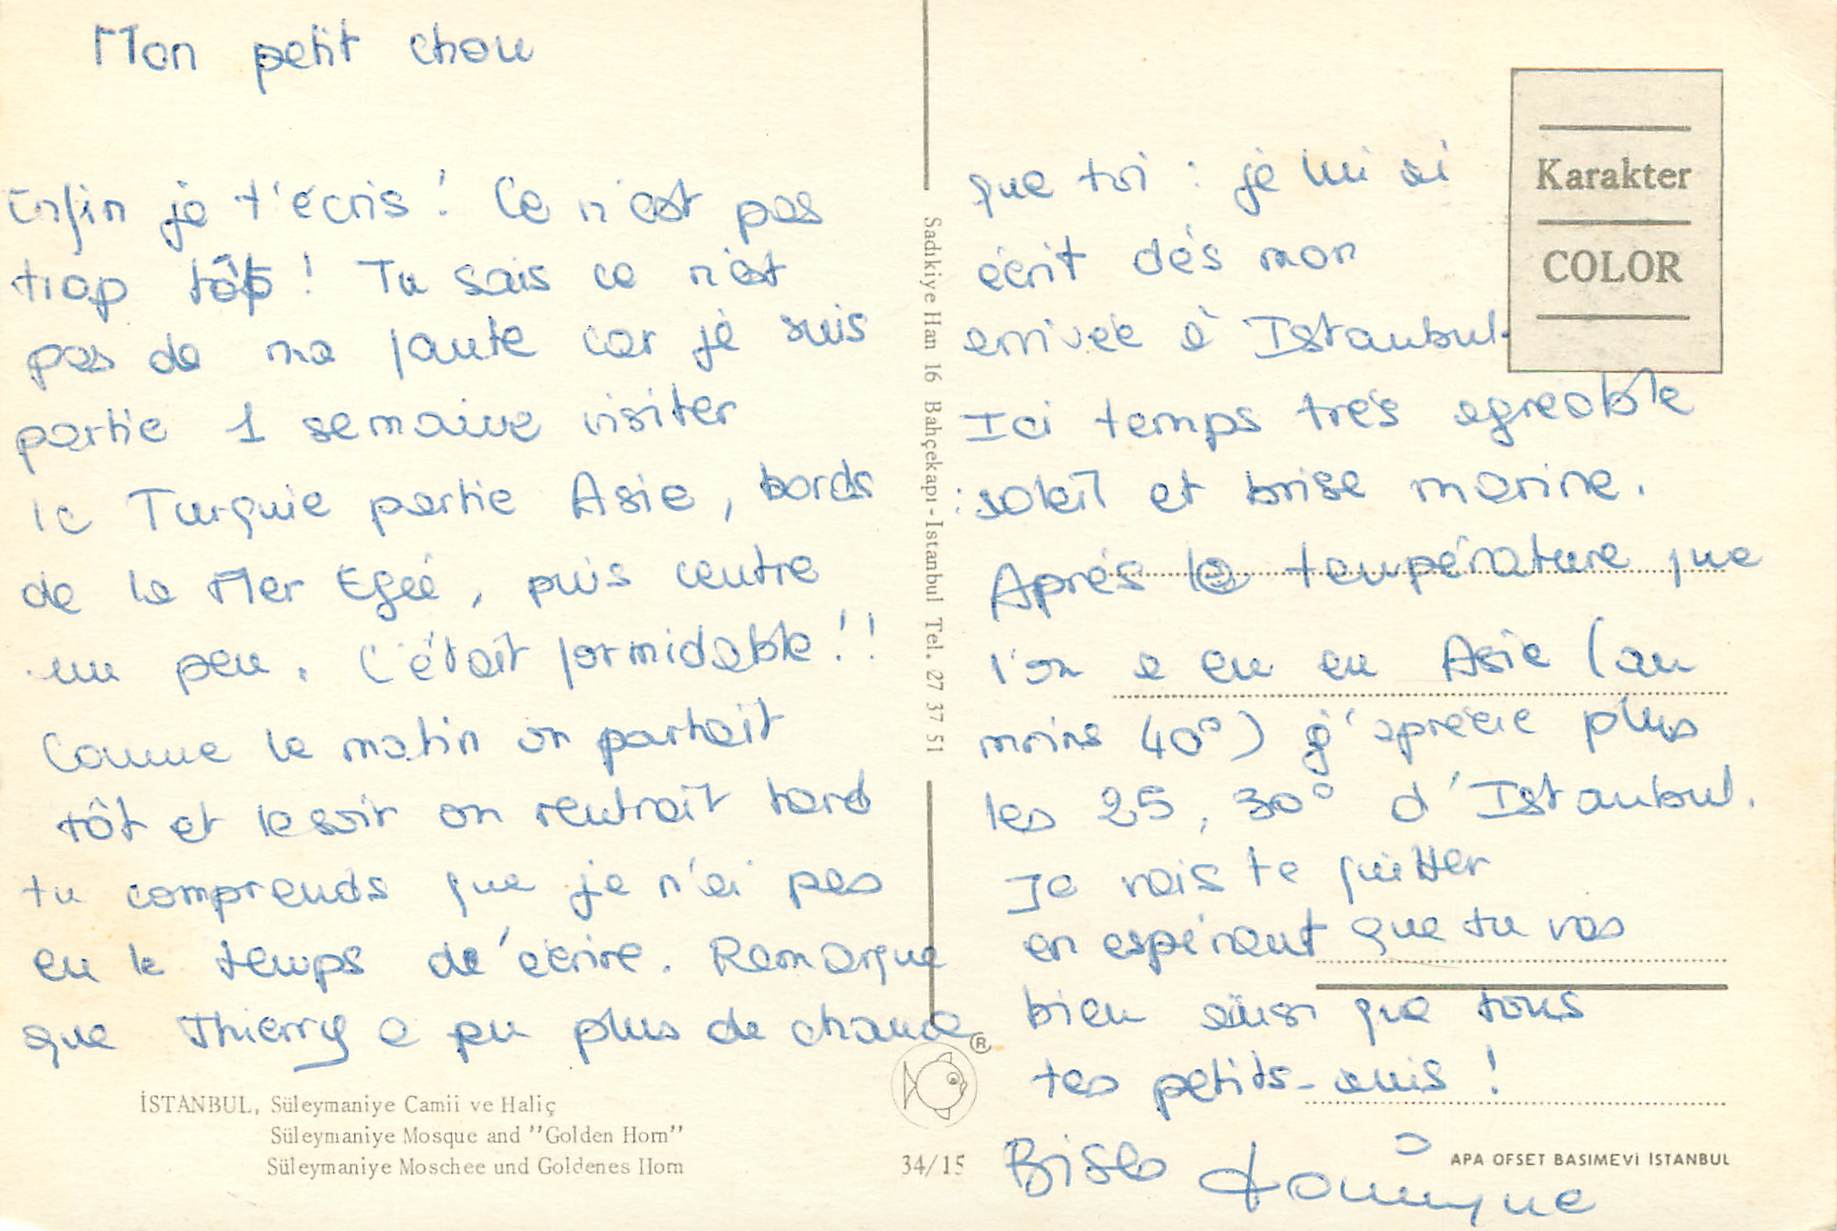 Mon petit chou
Enfin je t'écris ! Ce n'est pas
trop tôt ! Tu sais ce n'est
pas de ma faute car je suis
partie 1 semaine visiter
la Turquie partie Asie, bords
de la Mer Egée, puis centre
un peu. C'était formidable !!
Comme le matin on partait
tôt et le soir on rentrait tard
tu comprends que je n'ai pas
eu le temps de'écrire. Remarque
que Thierry a pu plus de chance
que toi : je lui ai
écrit dés mon
arrivée à Istanbul.
Ici temps trés agreable
: soleil et brise marine.
Aprés la température que
l'on a eu en Asie (au
moins 40°) j'aprécie plus
les 25, 30° d'Istanbul.
Je vais te quitter
en espérant que tu vas
bien ainsi que tous
tes petits-amis !
Bises Dominique
Karakter
COLOR
Sadıkiye Han 16 Bahçekapı-Istanbul Tel. 27 37 51
İSTANBUL, Süleymaniye Camii ve Haliç
Süleymaniye Mosque and "Golden Horn"
Süleymaniye Moschee und Goldenes Horn
®
34/15
APA OFSET BASIMEVİ İSTANBUL